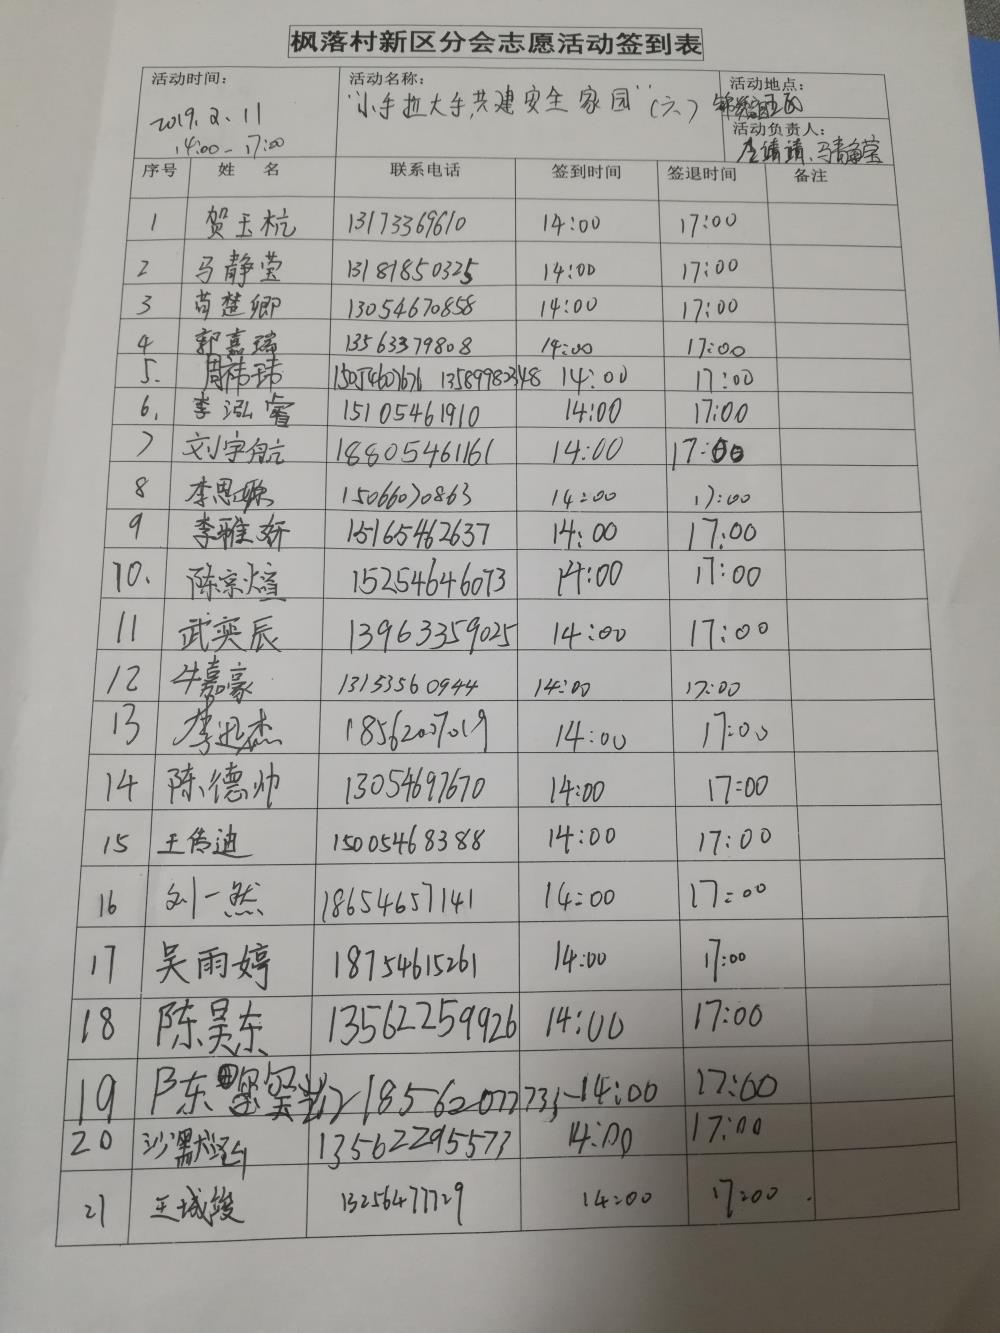 枫落村新区分会志愿活动签到表
活动时间： 活动名称： 活动地点：
2019.2.11 "小手拉大手,共建安全家园"(六) 锦苑
14:00-17:00 活动负责人：
马静莹
序号 姓 名 联系电话 签到时间 签退时间 备注
1 贺玉杭 13173369610 14:00 17:00
2 马静莹 13181850325 14:00 17:00
3 苟楚卿 13054670858 14:00 17:00
4 郭嘉瑞 13563379808 14:00 17:00
5. 周祎玮 15054607676 13589982348 14:00 17:00
6. 李泓睿 15105461910 14:00 17:00
7 刘宇航 18805461161 14:00 17:00
8 李思 15066070863 14:00 17:00
9 李雅妍 15165462637 14:00 17:00
10. 陈宗煊 15254646073 14:00 17:00
11 武奕辰 13963359025 14:00 17:00
12 牛嘉豪 13153560944 14:00 17:00
13 李迅杰 18562007019 14:00 17:00
14 陈德帅 13054697670 14:00 17:00
15 王传迪 15005468388 14:00 17:00
16 刘一然 18654657141 14:00 17:00
17 吴雨婷 18754615261 14:00 17:00
18 陈昊东 13562259926 14:00 17:00
19 陈 14:00 17:00
20 沙默泓 13562295573 14:00 17:00
21 王域竣 13256477729 14:00 17:00